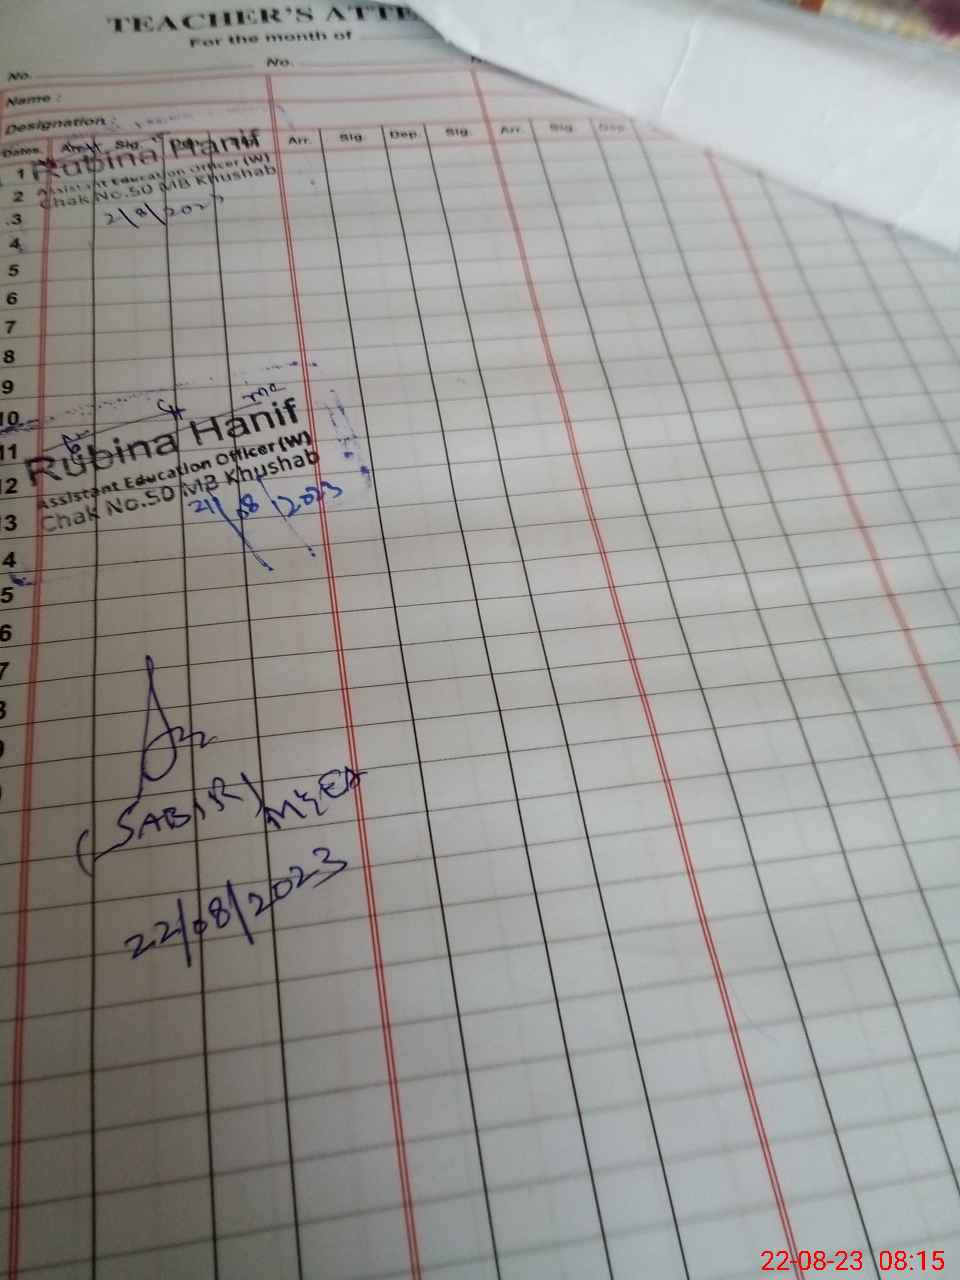 TEACHER'S ATTE
For the month of
No. No.
Name :
Designation :
Dates. Arr. Sig. Arr. Sig. Dep. Sig. Arr. Sig. Dep.
1 Rubina Hanif
2 Assistant Education Officer (W)
Chak No.50 MB Khushab
3 2/8/2023
4
5
6
7
8
9
10
11 Rubina Hanif
12 Assistant Education Officer (W)
Chak No.50 MB Khushab
3 21/08/2023
4
5
6
7
(SABIR) MEA
22/08/2023
22-08-23 08:15